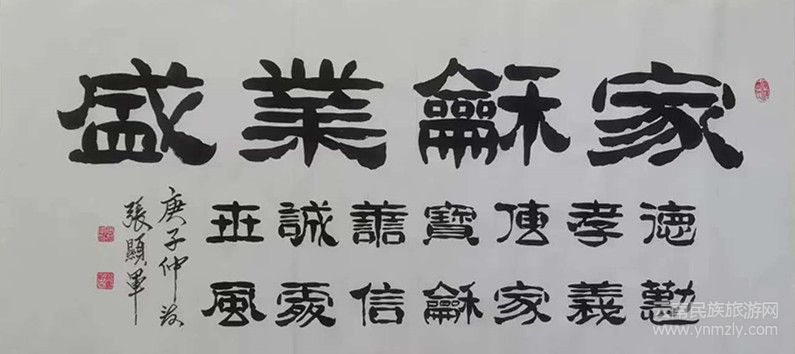 家龢業盛
德勤
孝義
傳家
寶龢
善信
誠處
世風
庚子仲
張顯軍
云南民族旅游网
www.ynmzly.com